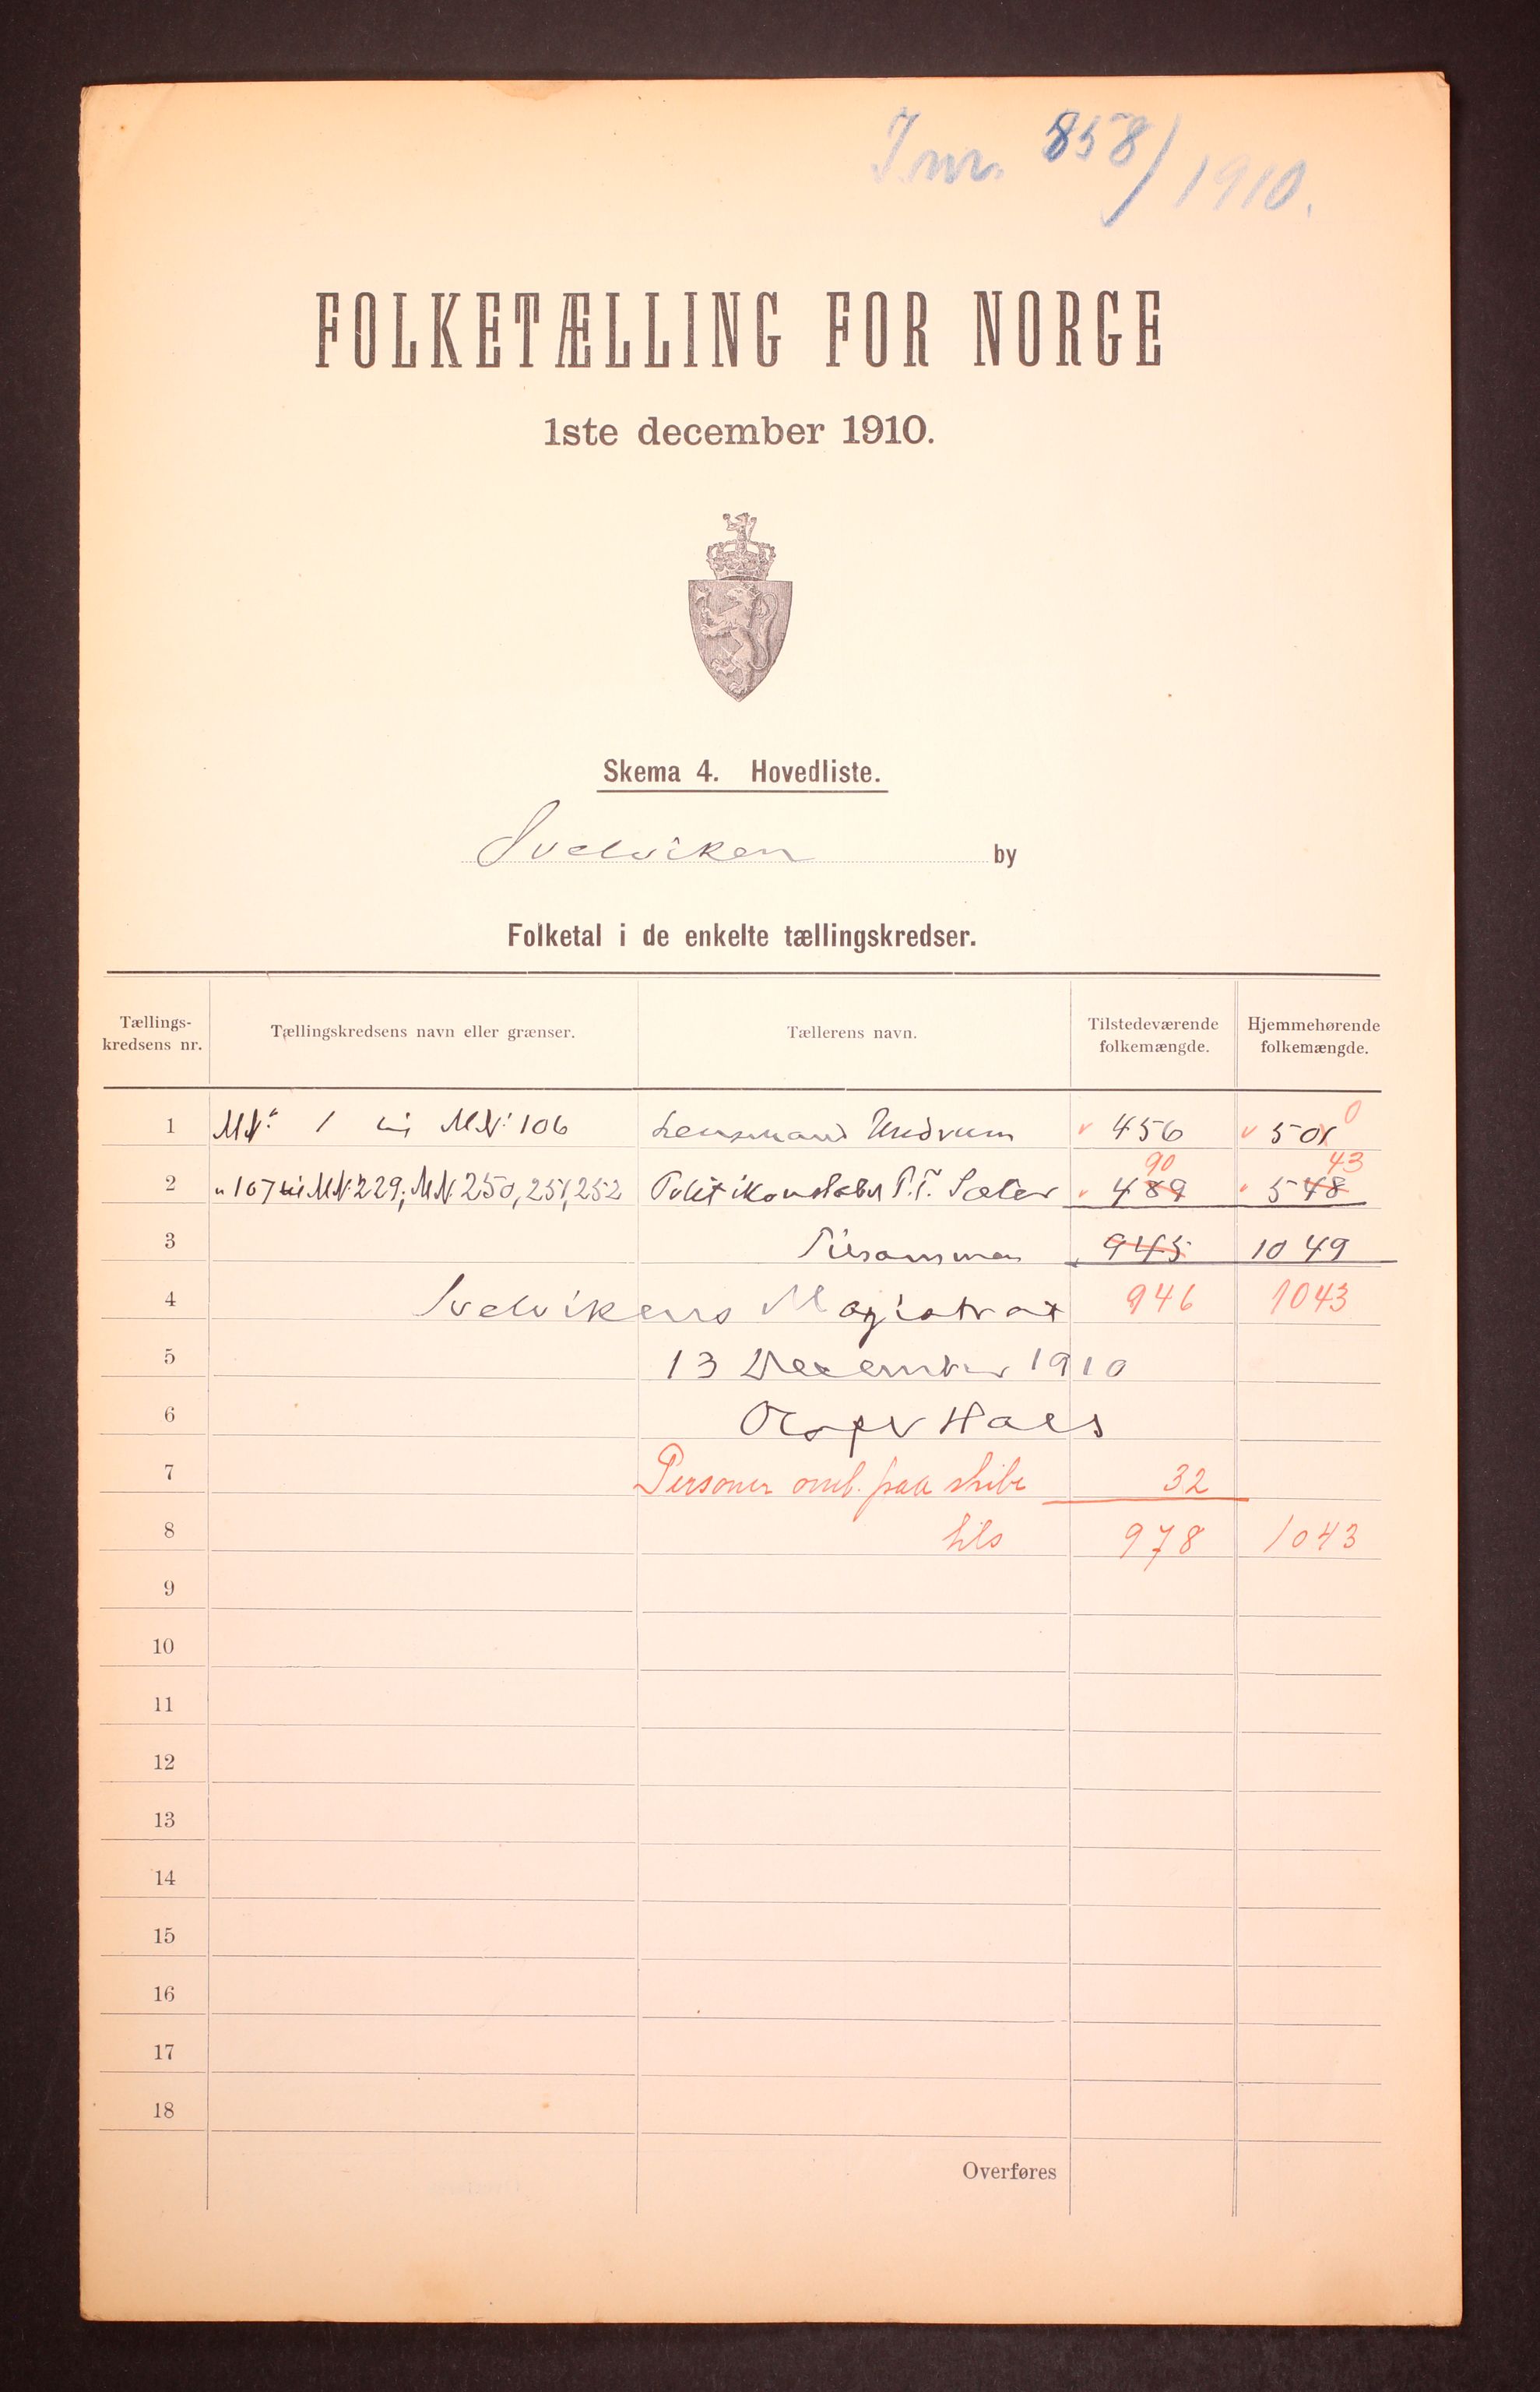 Jnr. 858/1910.
FOLKETÆLLING FOR NORGE
1ste december 1910.
Skema 4. Hovedliste.
Svelviken by
Folketal i de enkelte tællingskredser.
Tællings-kredsens nr. Tællingskredsens navn eller grænser. Tællerens navn. Tilstedeværende folkemængde. Hjemmehørende folkemængde.
1 MN: 1 til MN: 106 Lensmand Undrum 456 501 0
90 43
2 " 107 til MN: 229; MN 250, 251, 252 Politikonstabel P.T. Sæter 489 548
3 Tilsammen 945 1049
4 Svelvikens Magistrat 946 1043
5 13 December 1910
6 Hals
7 Personer omb. paa skibe 32
8 tils 978 1043
9
10
11
12
13
14
15
16
17
18
Overføres